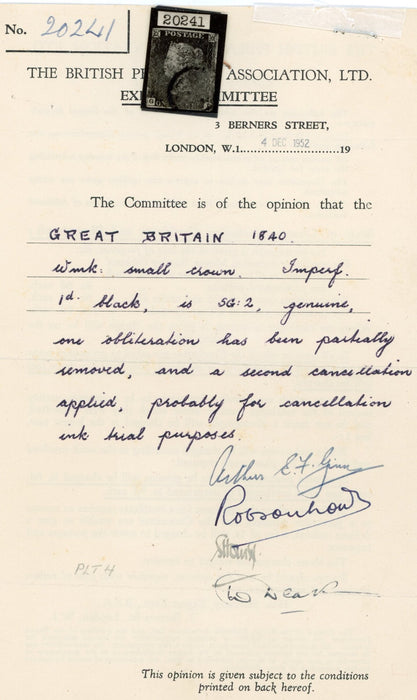 No. 20241
20241
POSTAGE
THE BRITISH P ASSOCIATION, LTD.
EX MITTEE
3 BERNERS STREET,
LONDON, W.1. 4 DEC 1952 19
The Committee is of the opinion that the
GREAT BRITAIN 1840.
Wmk: small crown. Imperf.
1d. black, is SG:2, genuine,
one obliteration has been partially
removed, and a second cancellation
applied, probably for cancellation
ink trial purposes
Arthur E.F. Ginn
Robsonlowe
PLT 4
This opinion is given subject to the conditions
printed on back hereof.